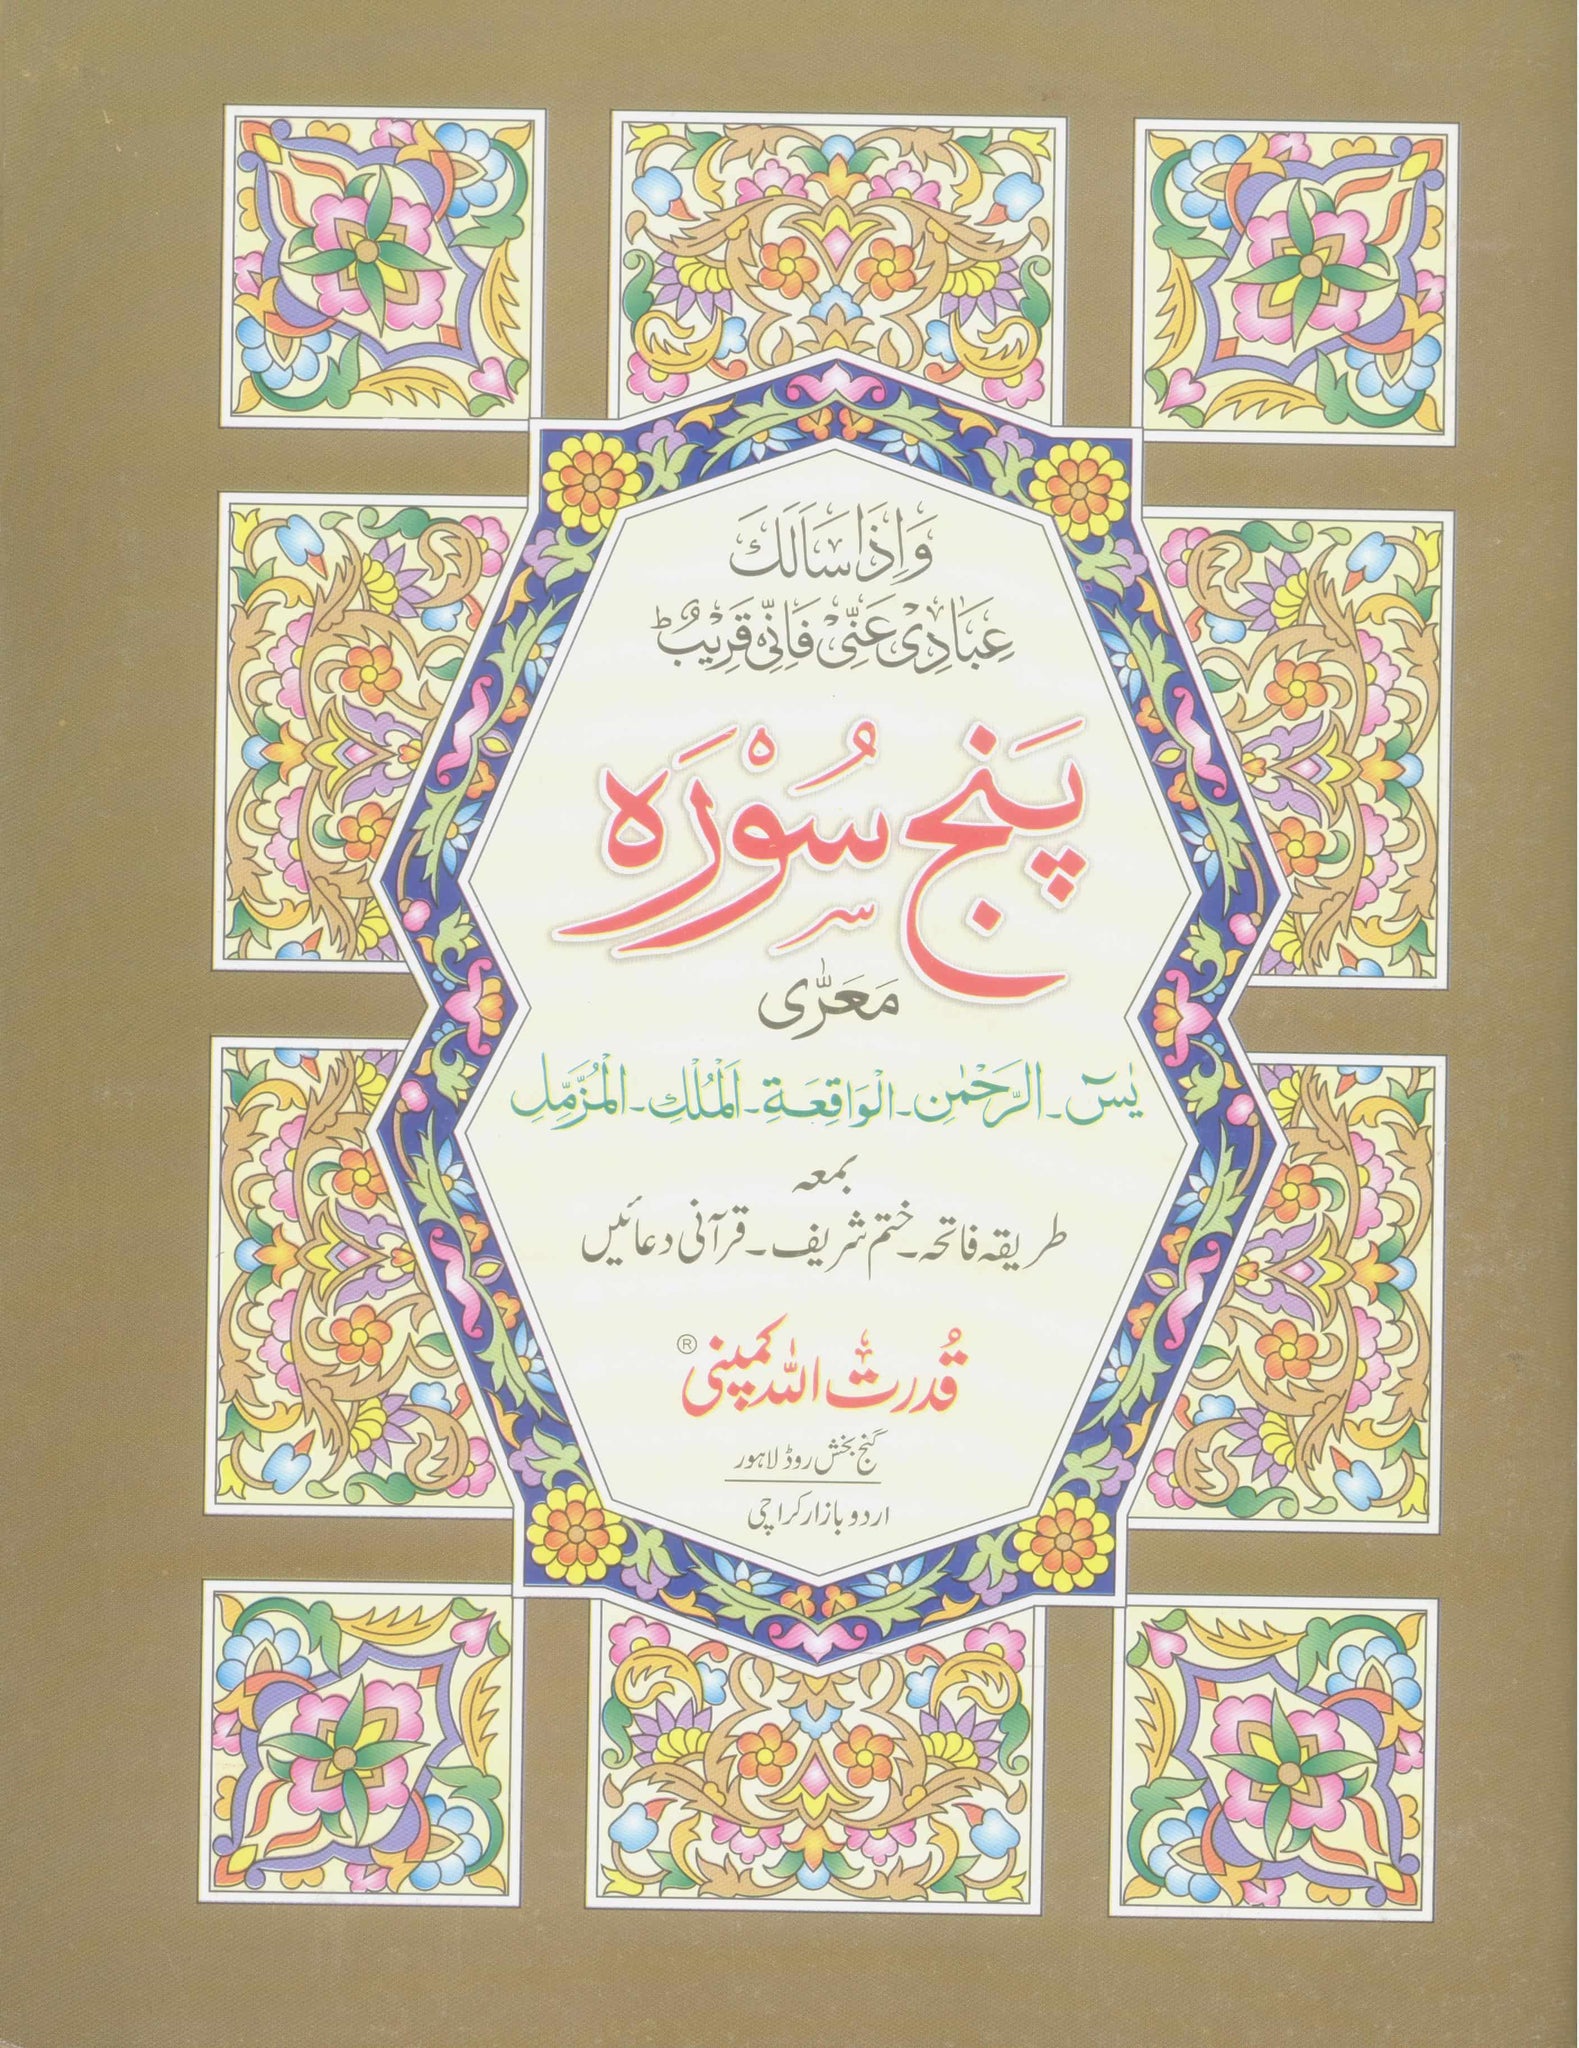 وَاِذَا سَاَلَكَ
عِبَادِیْ عَنِّیْ فَاِنِّیْ قَرِیْبٌ ؕ
پَنج سُوْرَہ
مَعَرّٰی
یٰسٓ ۔ الرَّحْمٰنِ ۔ الْوَاقِعَةِ ۔ اَلْمُلْكِ ۔ الْمُزَّمِّلِ
بمعہ
طریقہ فاتحہ ۔ ختم شریف ۔ قرآنی دعائیں
قُدرت اللہ کمپنی ®
گنج بخش روڈ لاہور
اردو بازار کراچی